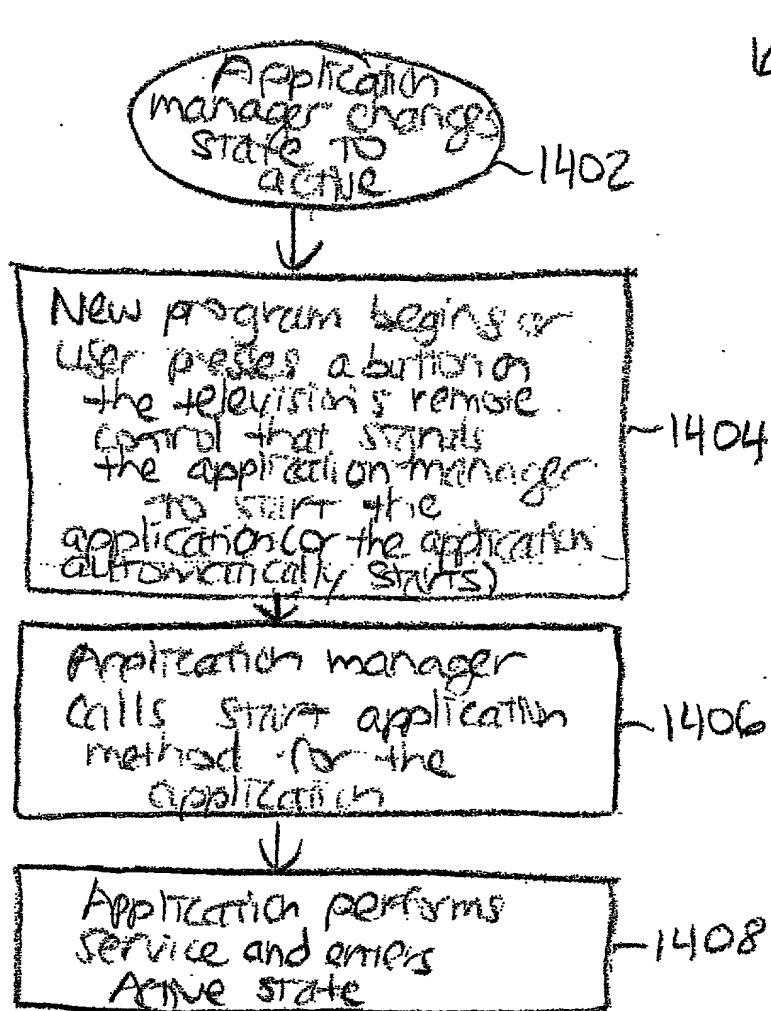 Application
manager changes
state to
active
1402
New program begins or
user presses a button on
the television's remote
control that signals
the application manager
to start the
application (or the application
automatically starts)
1404
Application manager
calls start application
method for the
application
1406
Application performs
service and enters
Active state
1408